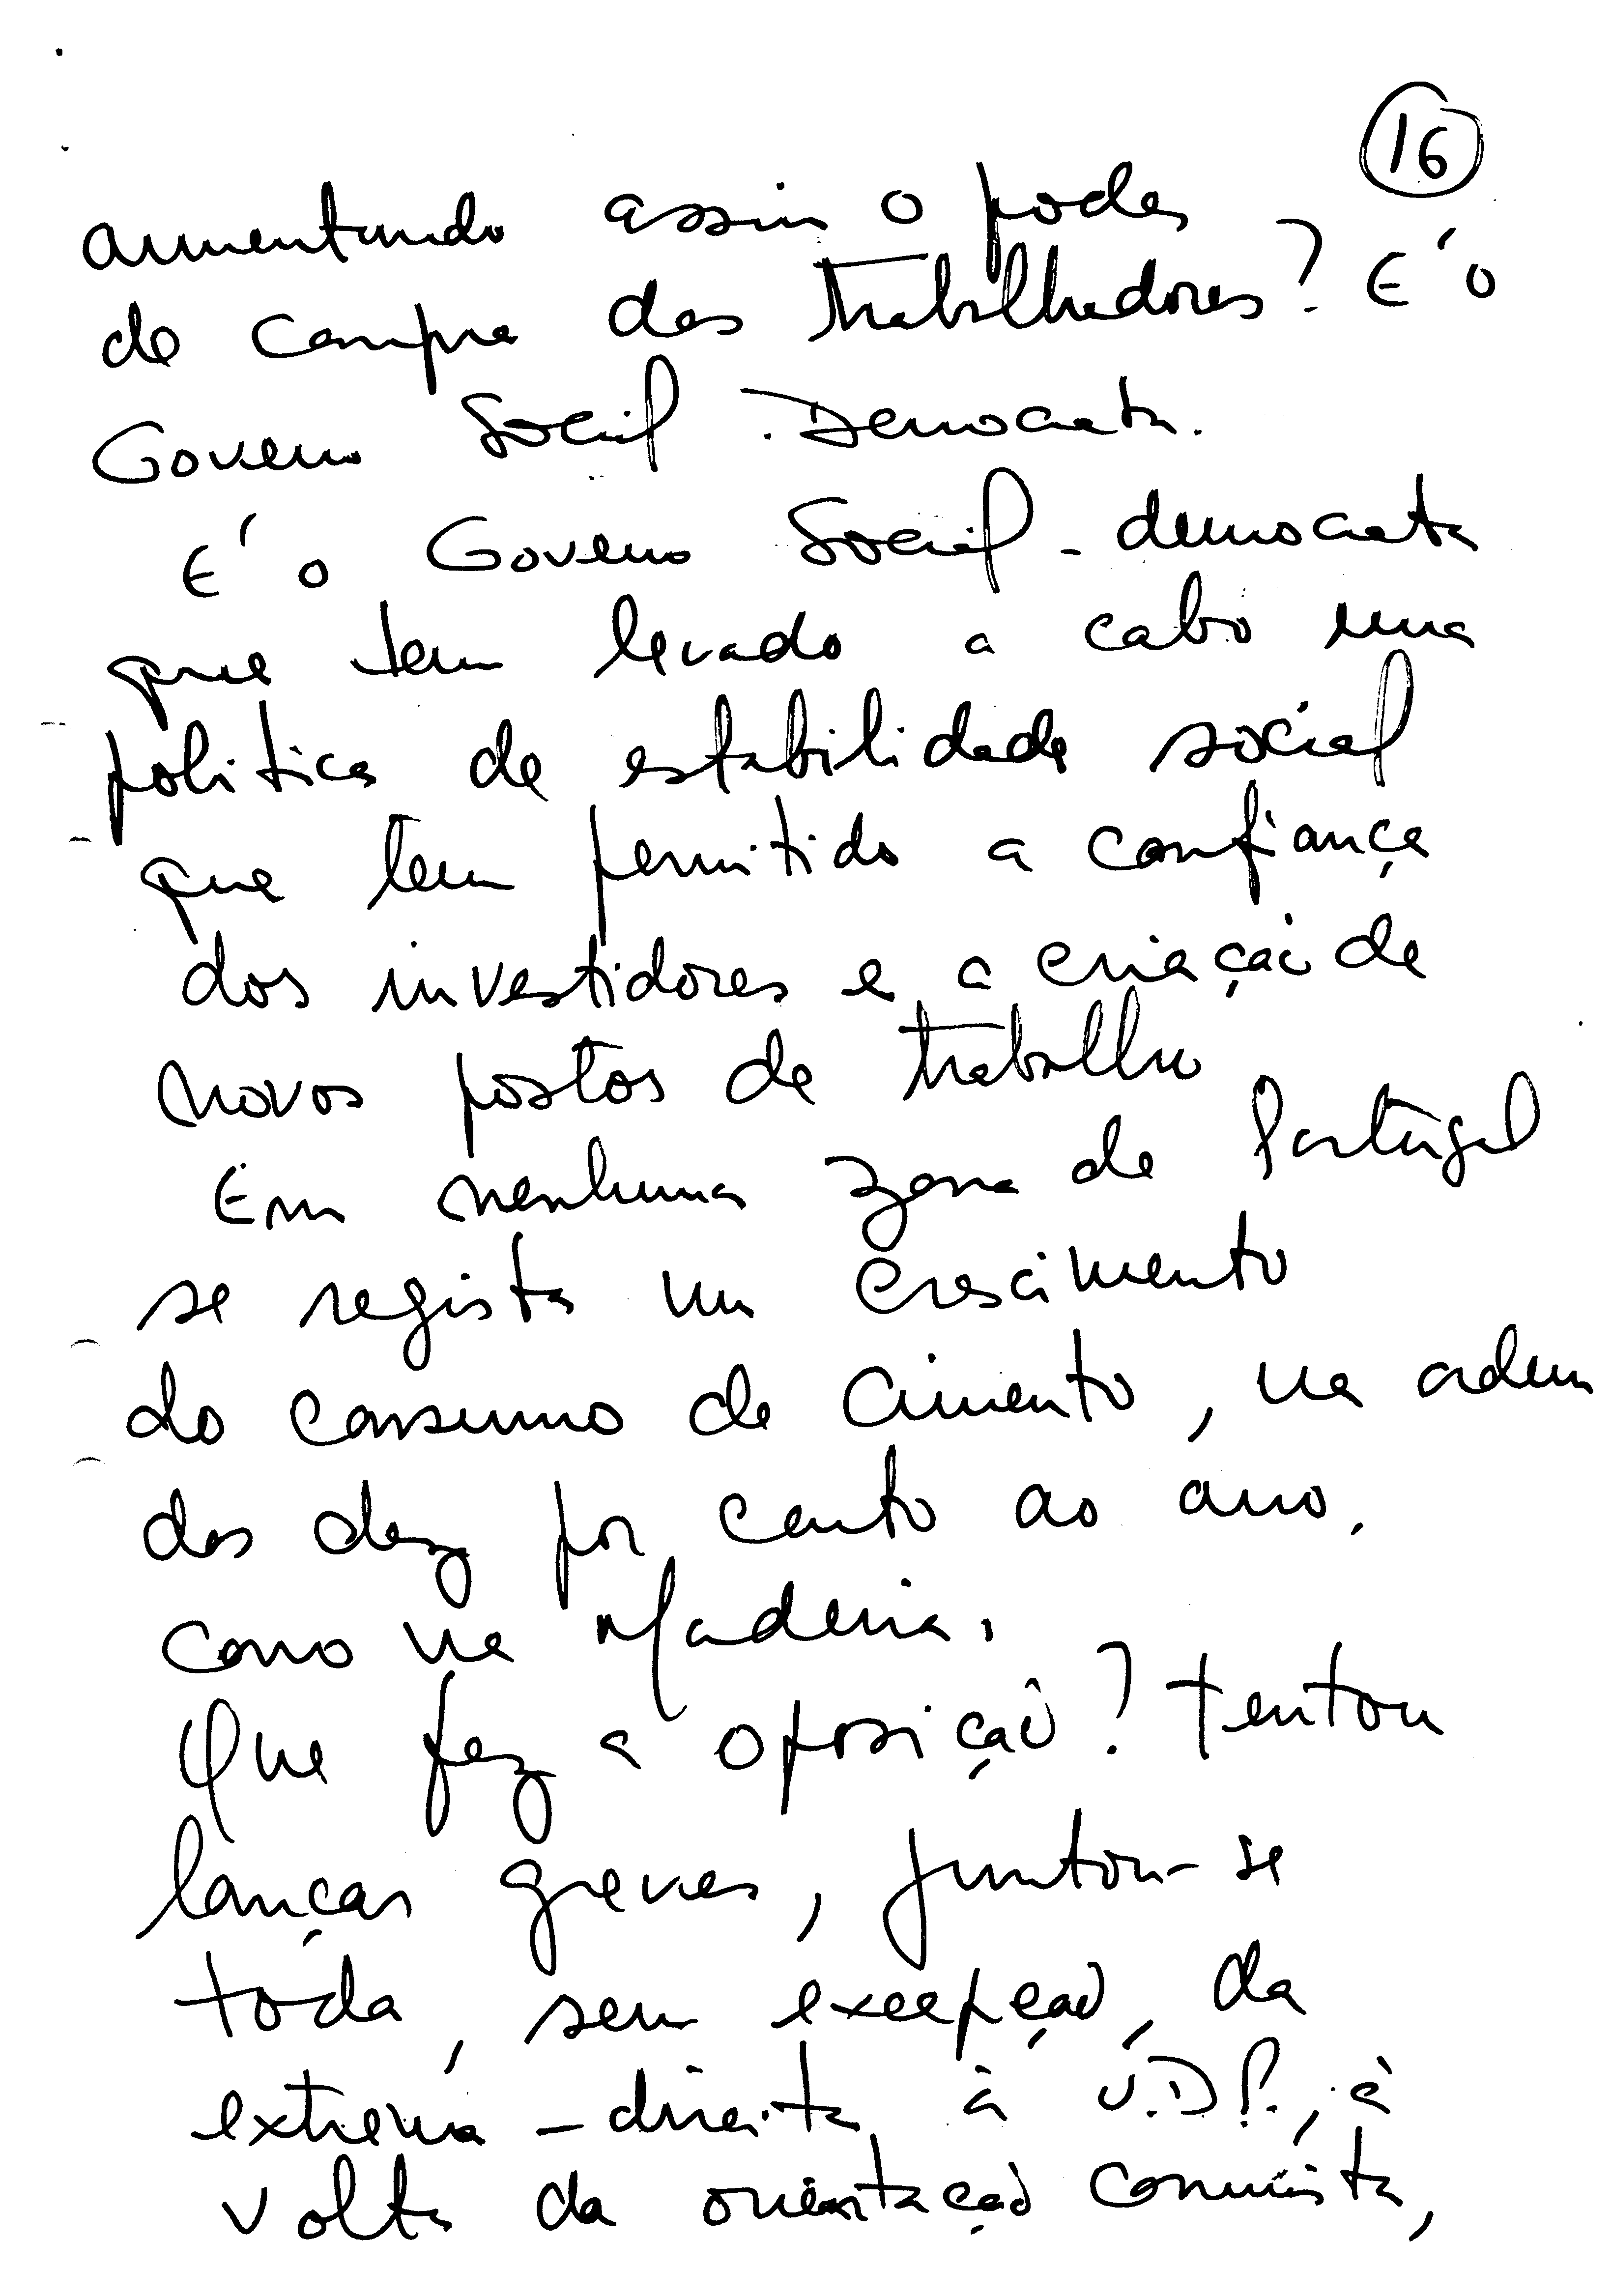 16
aumentando assim o poder
de compra dos trabalhadores? É o
Governo Social-Democrata.
É o Governo Social-democrata
que tem levado a cabo uma
política de estabilidade social
que tem permitido a confiança
dos investidores e a criação de
novos postos de trabalho
Em nenhuma zona de Portugal
se regista um crescimento
do consumo de cimento, na ordem
dos dez por cento ao ano,
como na Madeira.
Que fez a oposição? Tentou
lançar greves, juntou-se
toda, sem excepção, da
extrema-direita à U.D.P., à
volta da orientação comunista,